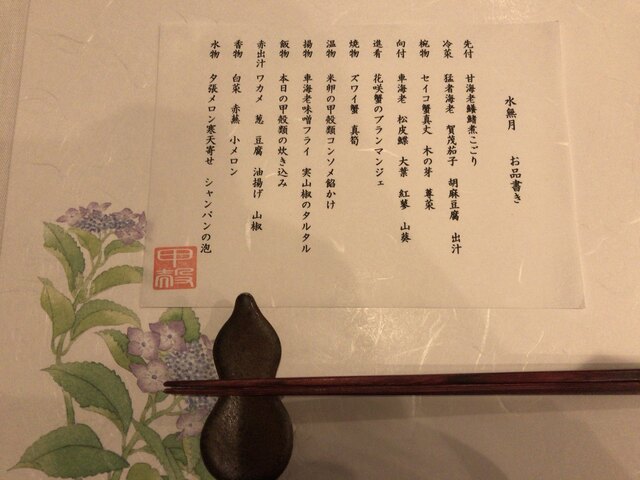 水無月　お品書き
先付　甘海老鱶鰭煮こごり
冷菜　猛者海老　賀茂茄子　胡麻豆腐　出汁
椀物　セイコ蟹真丈　木の芽　蓴菜
向付　車海老　松皮鰈　大葉　紅蓼　山葵
進肴　花咲蟹のブランマンジェ
焼物　ズワイ蟹　真筍
温物　米卵の甲殻類コンソメ餡かけ
揚物　車海老味噌フライ　実山椒のタルタル
飯物　本日の甲殻類の炊き込み
赤出汁　ワカメ　葱　豆腐　油揚げ　山椒
香物　白菜　赤蕪　小メロン
水物　夕張メロン寒天寄せ　シャンパンの泡
甲殻